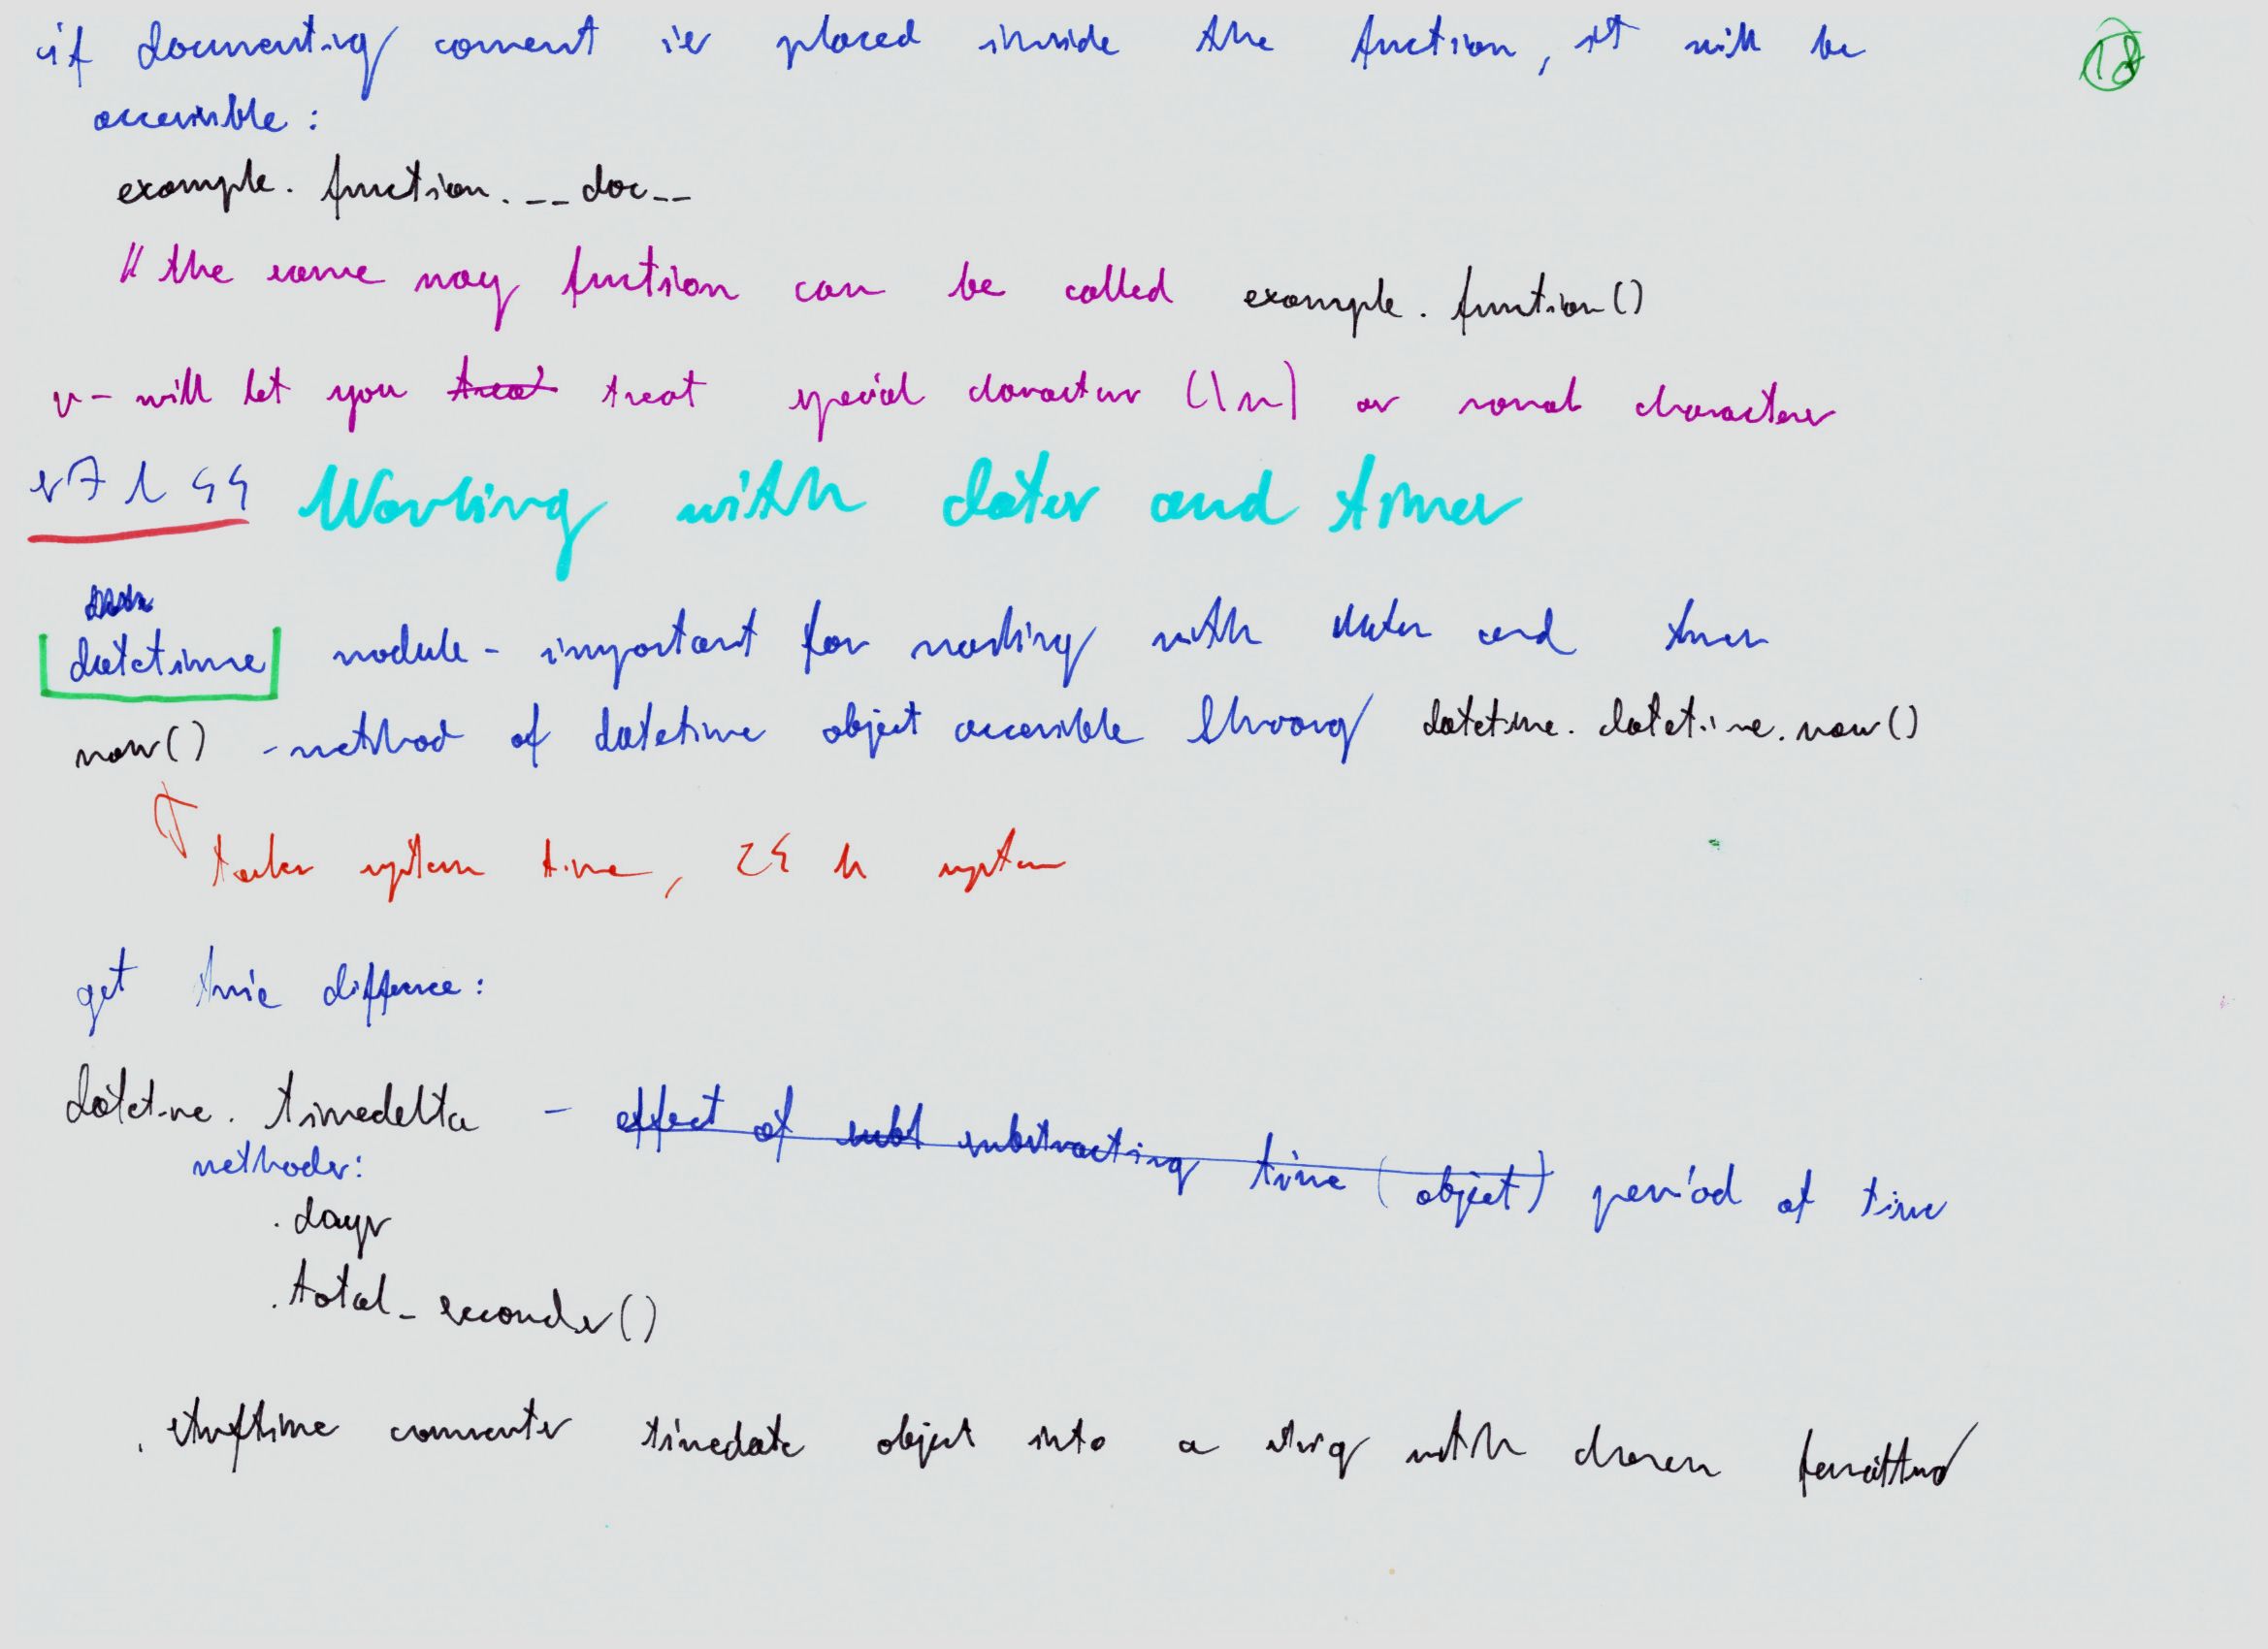 if documenting coment is placed inside the fuction, it will be
18
accessible:
example. function.__doc__
// the same way fuction can be called example. function()
r - will let you treat treat special character (\n) as normal characters
s7 l 44 Working with dates and times
datetime module - important for working with dates and times
now() - method of datetime object accessible throug datetime. datetime. now()
takes system time, 24 h system
get time diffence:
datetime. timedelta - effect of subt substracting time (object) period of time
methods:
.days
.total_seconds()
.strftime converts timedate object into a string with chosen